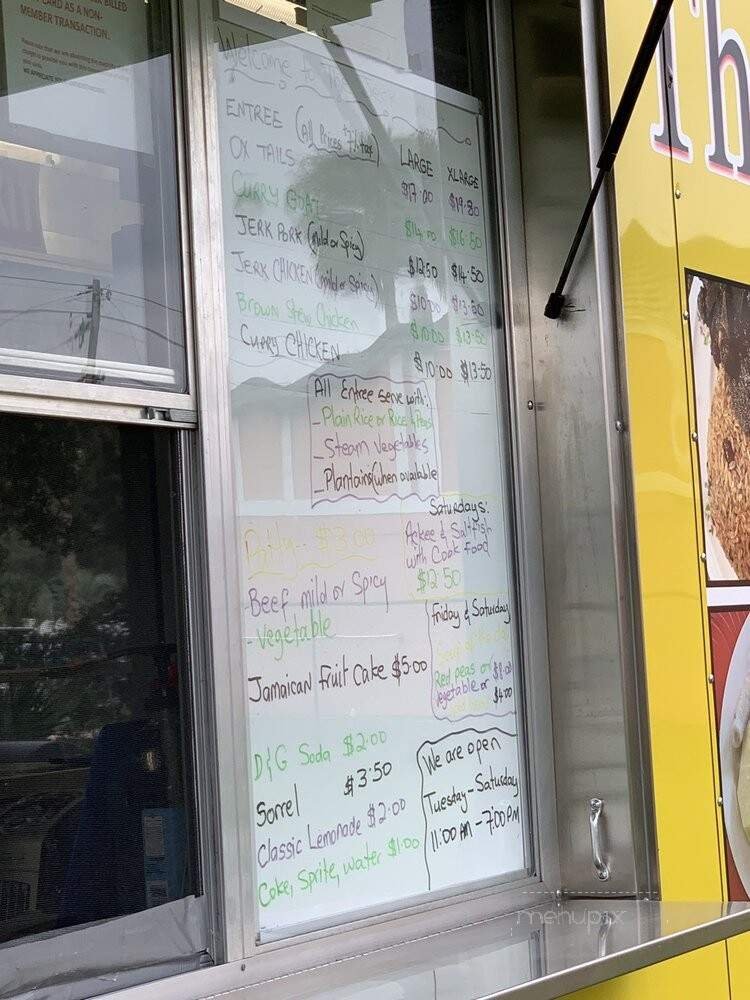 CARD AS A NON-
MEMBER TRANSACTION.
BILLED
Welcome to The
ENTREE (All Prices + Tax)
LARGE XLARGE
OX TAILS $17.00 $19.80
CURRY GOAT $14.00 $16.80
JERK PORK (mild or Spicy) $12.50 $14.50
JERK CHICKEN (mild or Spicy) $10.00 $13.50
Brown Stew Chicken $10.00 $13.50
CURRY CHICKEN $10.00 $13.50
All Entree serve with:
- Plain Rice or Rice & Peas
- Steam Vegetables
- Plantains (when available
Patty - $3.00
- Beef mild or Spicy
- vegetable
Jamaican Fruit Cake $5.00
Saturdays:
Ackee & Saltfish
with Cook food
$12.50
Friday & Saturday
Soup of the day
Red peas or
vegetable or $8.00
$4.00
D&G Soda $2.00
Sorrel $3.50
Classic Lemonade $2.00
Coke, Sprite, water $1.00
We are open
Tuesday - Saturday
11:00 AM - 7:00 PM
Th
menupix